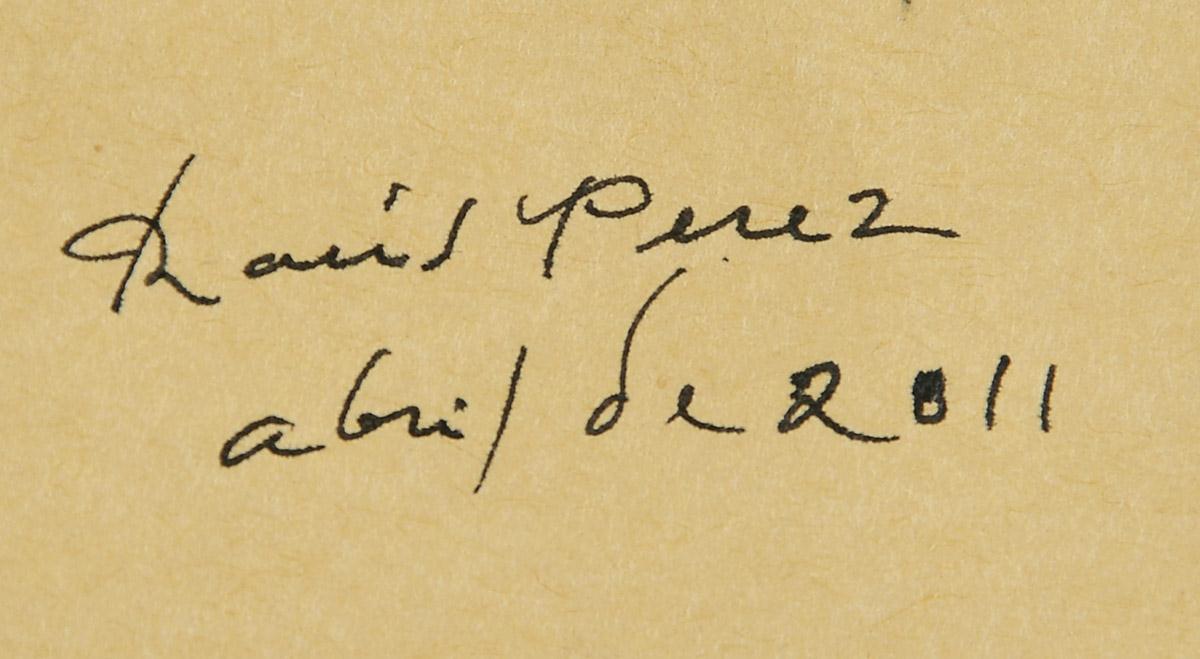 Perez
abril de 2011